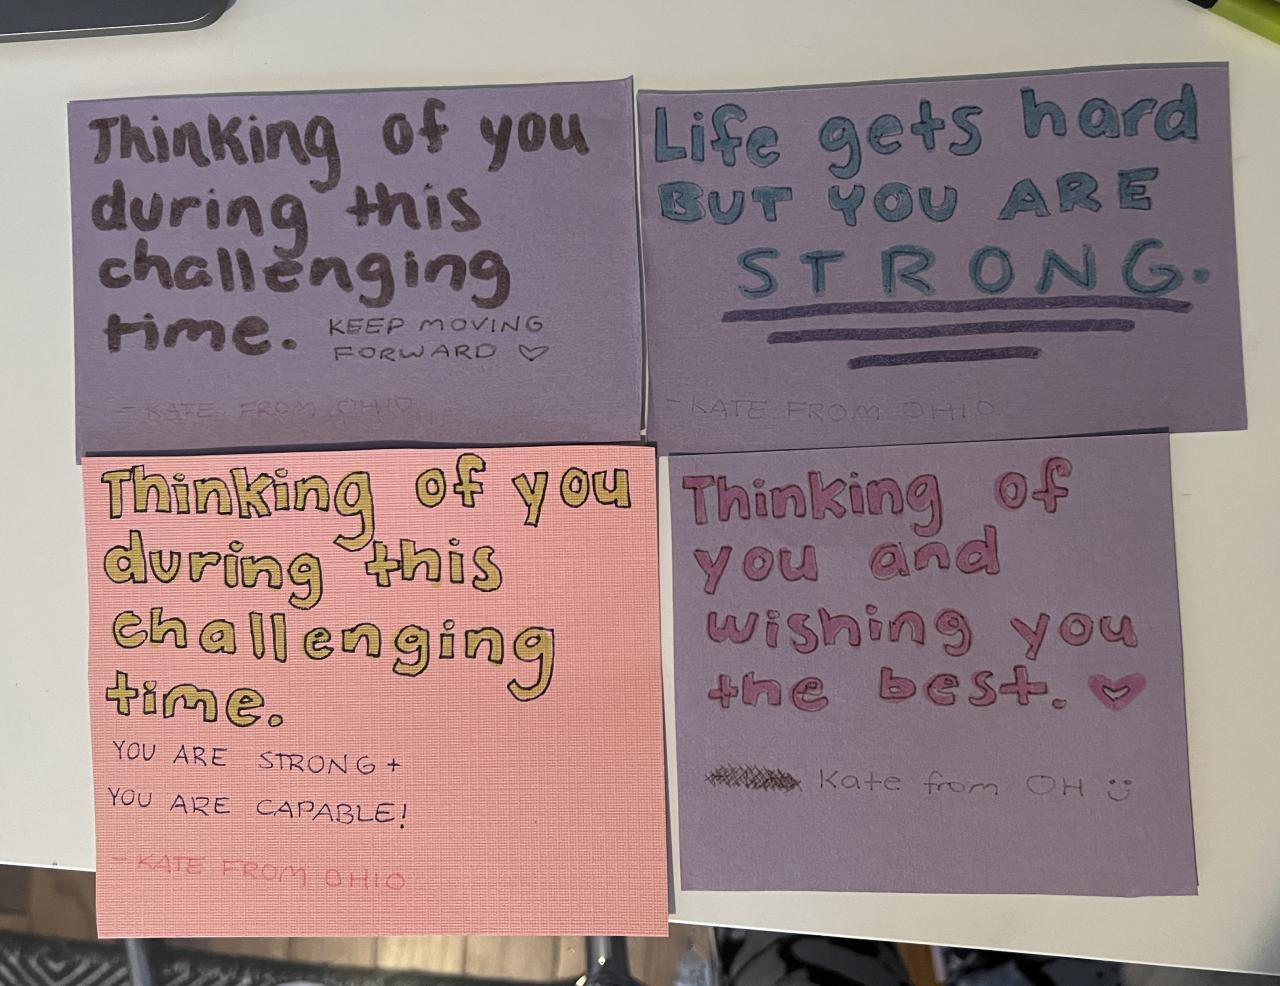 Thinking of you
during this
challenging
time. KEEP MOVING
FORWARD ♡
- KATE FROM OHIO
Life gets hard
BUT YOU ARE
STRONG.
- KATE FROM OHIO
Thinking of you
during this
challenging
time.
YOU ARE STRONG +
YOU ARE CAPABLE!
- KATE FROM OHIO
Thinking of
you and
wishing you
the best. ♡
Kate from OH :)